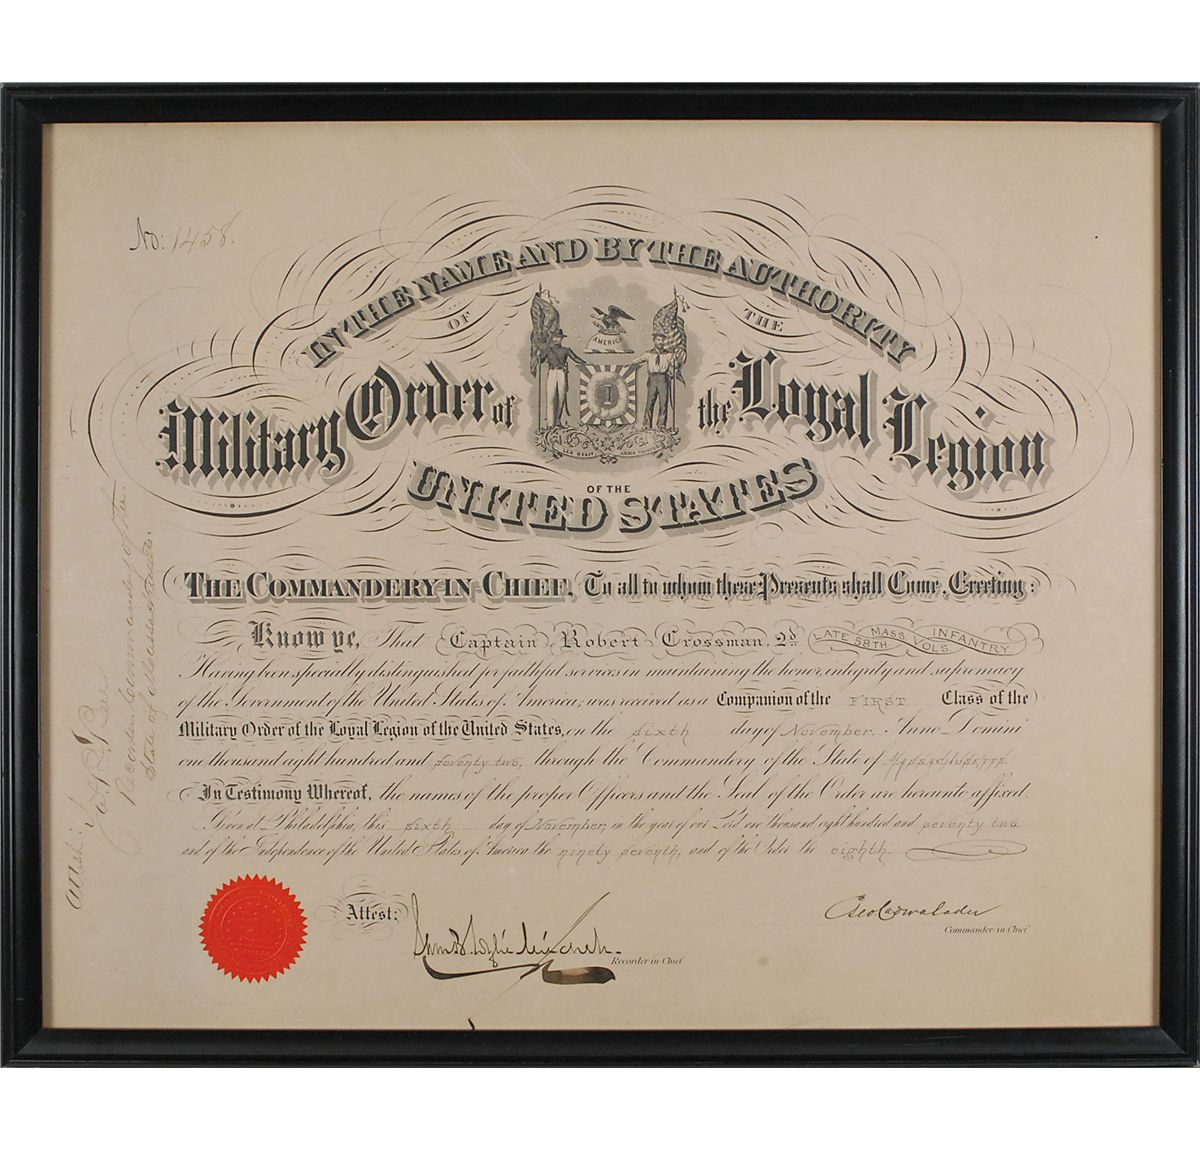 No: 1458.
IN THE NAME AND BY THE AUTHORITY
OF THE
AMERICA
1
Military Order of the Loyal Legion
LEX REGIT, ARMA TUENTUR
OF THE
UNITED STATES
THE COMMANDERY-IN-CHIEF, To all to whom these Presents shall Come, Greeting:
Know ye, That Captain Robert Crossman, 2d LATE 58TH MASS VOLS INFANTRY.
Having been specially distinguished for faithful services in maintaining the honor, integrity and supremacy
of the Government of the United States of America, was received as a Companion of the FIRST Class of the
Military Order of the Loyal Legion of the United States, on the sixth day of November. Anno Domini
one thousand eight hundred and seventy two, through the Commandery of the State of Massachusetts
In Testimony Whereof, the names of the proper Officers and the Seal of the Order are hereunto affixed.
Given at Philadelphia, this sixth day of November, in the year of our Lord one thousand eight hundred and seventy two,
and of the Independence of the United States of America the ninety seventh, and of the Order the eighth.
Attest:
Recorder-in-Chief
Geo Cadwalader
Commander-in-Chief
Attest:
Recorder Commandery of the
State of Massachusetts.